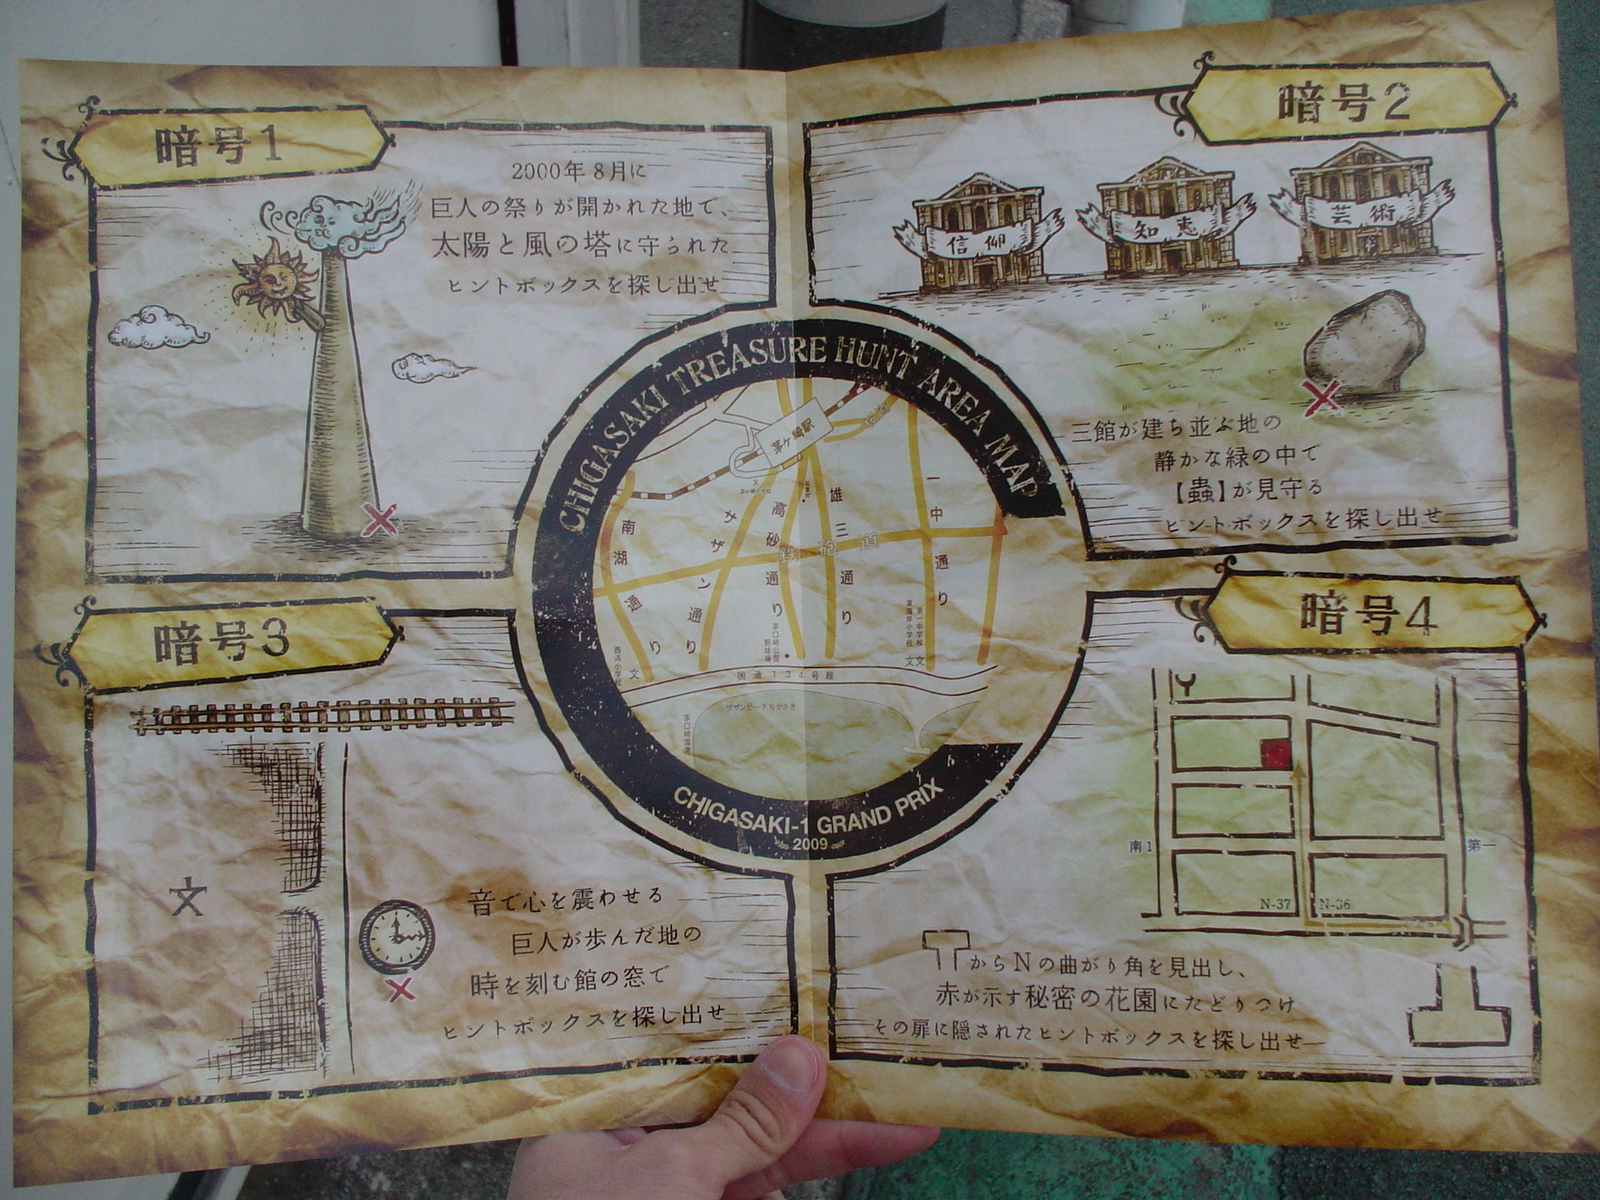 暗号1
2000年8月に
巨人の祭りが開かれた地で、
太陽と風の塔に守られた
ヒントボックスを探し出せ
暗号2
信仰
知恵
芸術
三館が建ち並ぶ地の
静かな緑の中で
【蟲】が見守る
ヒントボックスを探し出せ
CHIGASAKI TREASURE HUNT AREA MAP
茅ヶ崎駅
南湖通り
サザン通り
高砂通り
雄三通り
一中通り
鉄砲道
西浜小学校
文
文文
国道134号線
サザンビーチちがさき
CHIGASAKI-1 GRAND PRIX
2009
暗号3
文
音で心を震わせる
巨人が歩んだ地の
時を刻む館の窓で
ヒントボックスを探し出せ
暗号4
南1
第一
N-37
N-36
からNの曲がり角を見出し、
赤が示す秘密の花園にたどりつけ
その扉に隠されたヒントボックスを探し出せ